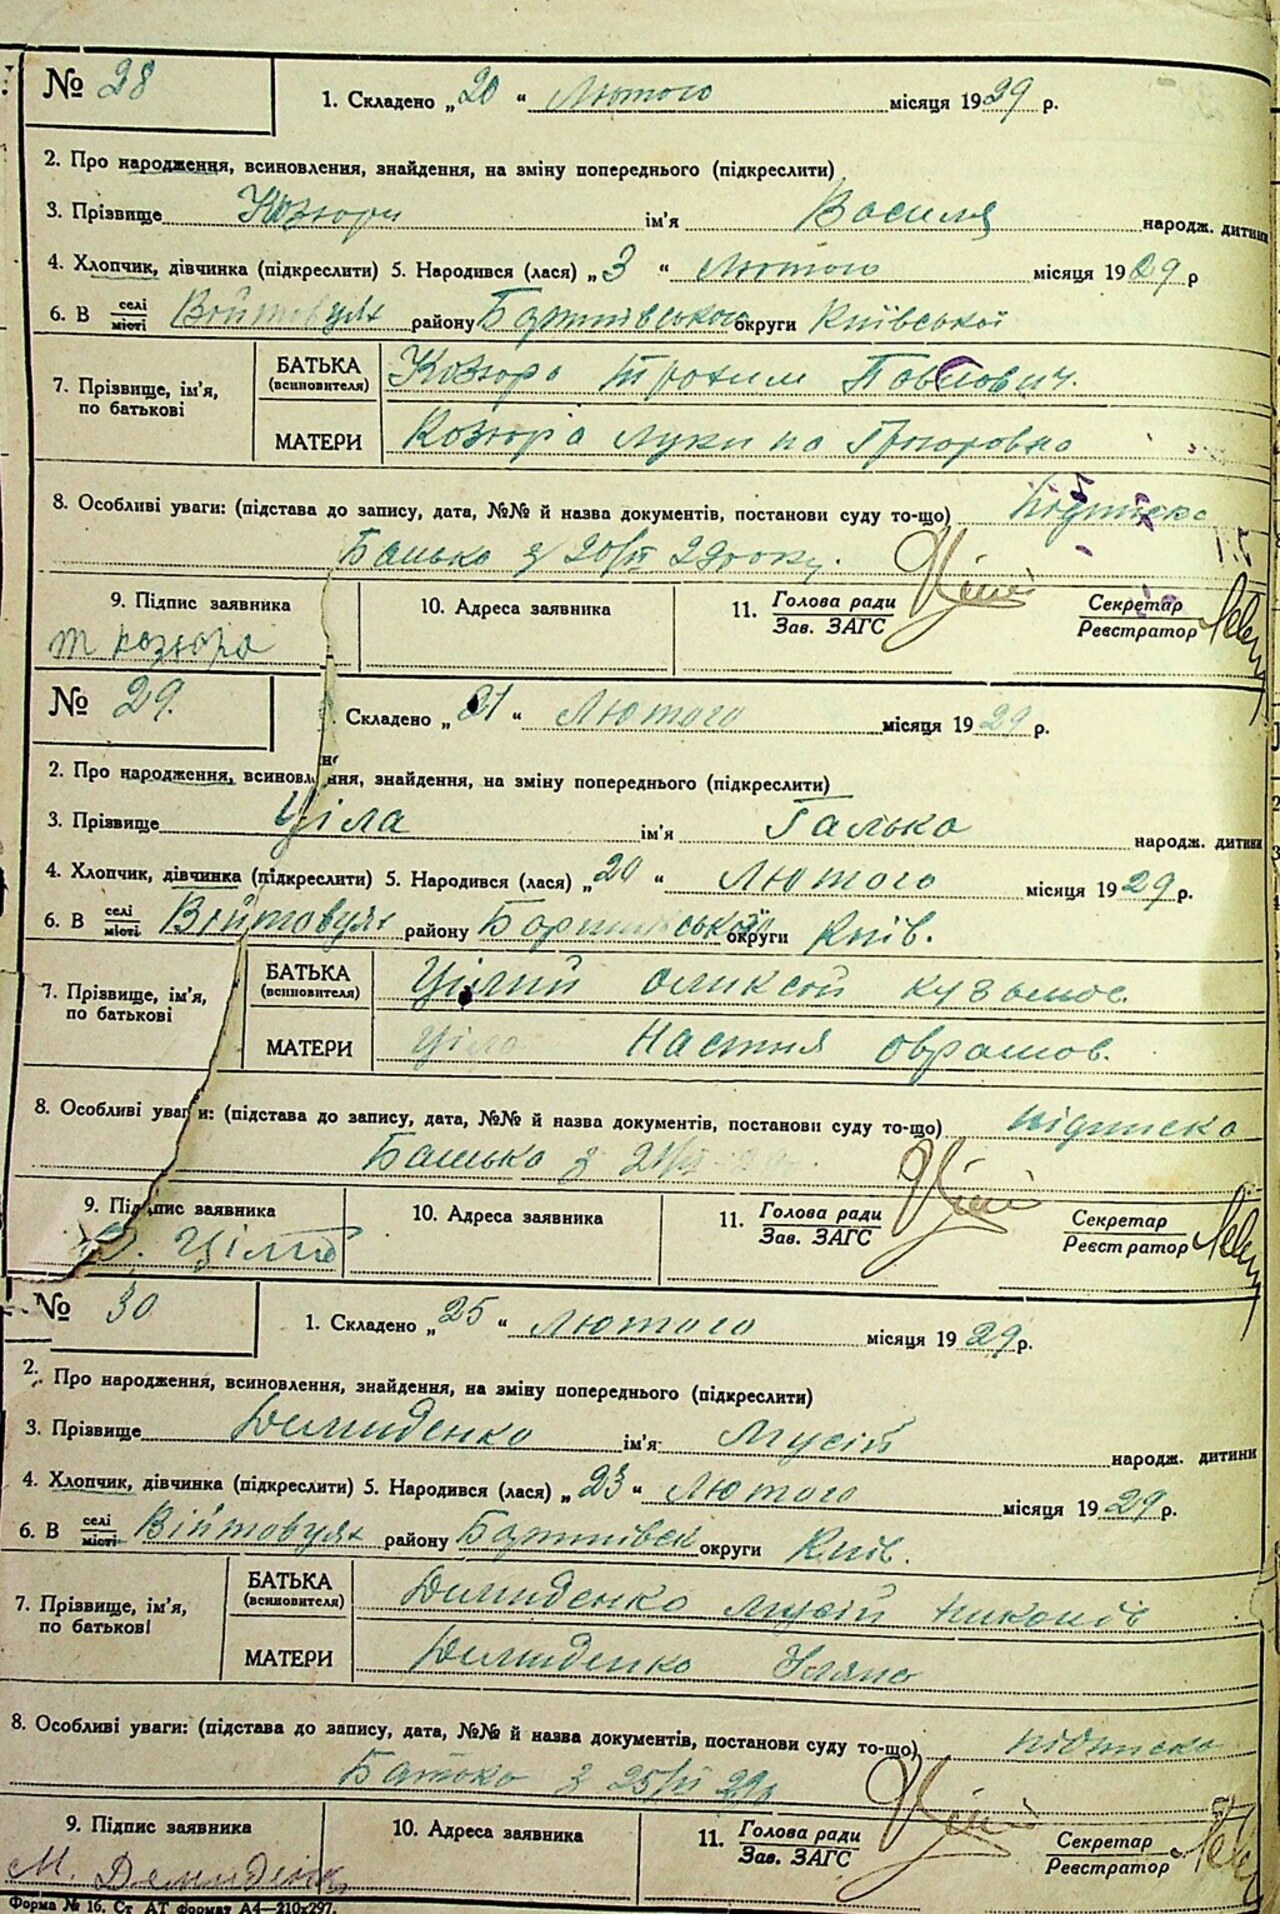 № 28
1. Складено „20“ Лютого місяця 1929 р.
2. Про народження, всиновлення, знайдення, на зміну попереднього (підкреслити)
3. Прізвище Козюри ім'я Василя народж. дитини
4. Хлопчик, дівчинка (підкреслити) 5. Народився (лася) „3“ Лютого місяця 1929 р
6. В селі місті Війтовцях району Баришівського округи Київської
7. Прізвище, ім'я, по батькові
БАТЬКА (всиновителя) Козюра Трохим Павлович.
МАТЕРИ Козюра Лукина Григоровна
8. Особливі уваги: (підстава до запису, дата, №№ й назва документів, постанови суду то-що) підписка
Батька з 20/II 29 року.
9. Підпис заявника 10. Адреса заявника 11. Голова ради Зав. ЗАГС Секретар Реєстратор
Т Козюра
№ 29.
Складено „21“ Лютого місяця 1929 р.
2. Про народження, всиновлення, знайдення, на зміну попереднього (підкреслити)
3. Прізвище Ціла ім'я Галька народж. дитини
4. Хлопчик, дівчинка (підкреслити) 5. Народився (лася) „20“ Лютого місяця 1929 р.
6. В селі місті Війтовцях району округи Київ.
7. Прізвище, ім'я, по батькові
БАТЬКА (всиновителя) Цілий Оликсей Кузьмов.
МАТЕРИ Ціла Настия Оврамов.
8. Особливі уваги: (підстава до запису, дата, №№ й назва документів, постанови суду то-що) підписка
Батька з 21/II
9. Підпис заявника 10. Адреса заявника 11. Голова ради Зав. ЗАГС Секретар Реєстратор
№ 30
1. Складено „25“ Лютого місяця 1929 р.
2. Про народження, всиновлення, знайдення, на зміну попереднього (підкреслити)
3. Прізвище Демиденко ім'я Мусій народж. дитини
4. Хлопчик, дівчинка (підкреслити) 5. Народився (лася) „23“ Лютого місяця 1929 р.
6. В селі місті Війтовцях району Баришівск округи Київ.
7. Прізвище, ім'я, по батькові
БАТЬКА (всиновителя) Демиденко Мусій Никонів
МАТЕРИ Демиденко Уляна
8. Особливі уваги: (підстава до запису, дата, №№ й назва документів, постанови суду то-що) підписка
Батька з 25/II 29р
9. Підпис заявника 10. Адреса заявника 11. Голова ради Зав. ЗАГС Секретар Реєстратор
М. Демиденко
Форма № 16. Ст АТ формат А4—210х297.